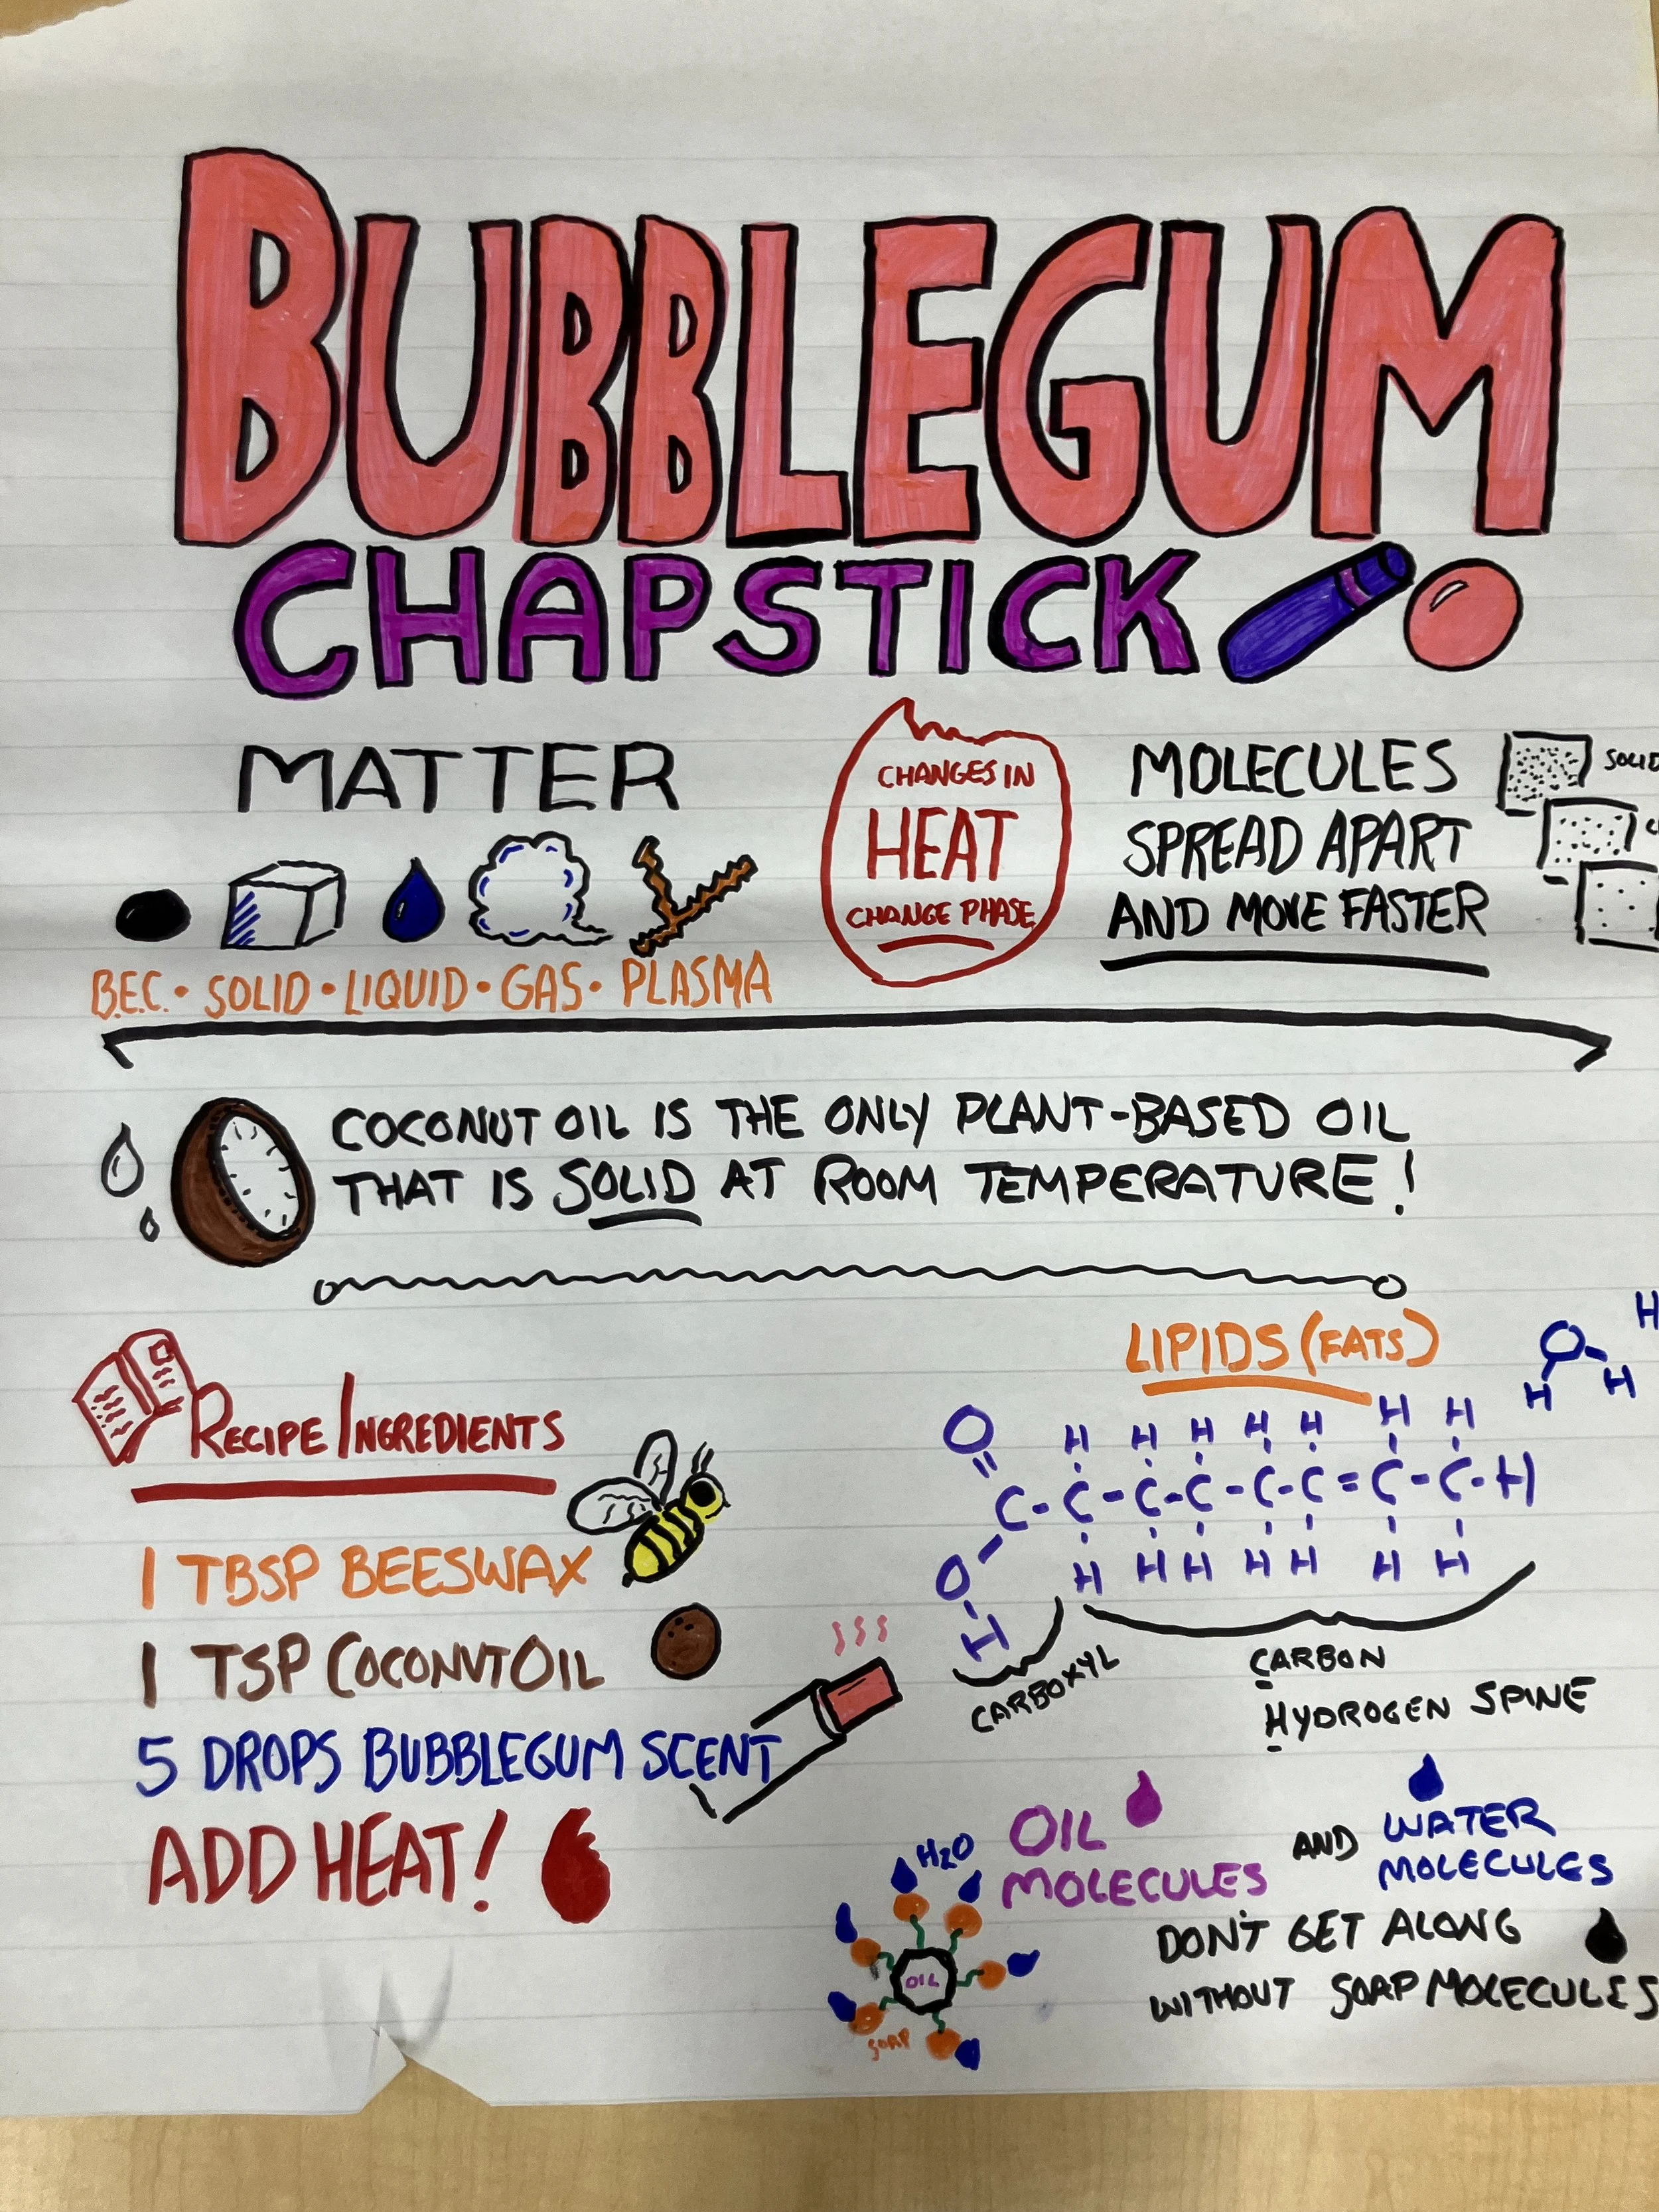 BUBBLEGUM
CHAPSTICK
MATTER
B.E.C. • SOLID • LIQUID • GAS • PLASMA
CHANGES IN
HEAT
CHANGE PHASE
MOLECULES
SPREAD APART
AND MOVE FASTER
SOLID
COCONUT OIL IS THE ONLY PLANT-BASED OIL
THAT IS SOLID AT ROOM TEMPERATURE!
RECIPE/INGREDIENTS
1 TBSP BEESWAX
1 TSP COCONUT OIL
5 DROPS BUBBLEGUM SCENT
ADD HEAT!
LIPIDS (FATS)
H
O
H H
O H H H H H H H
C-C-C-C-C-C=C-C-H
O H H H H H H H
H
CARBOXYL
CARBON
HYDROGEN SPINE
OIL
MOLECULES
AND
WATER
MOLECULES
DON'T GET ALONG
WITHOUT SOAP MOLECULES
H2O
OIL
SOAP